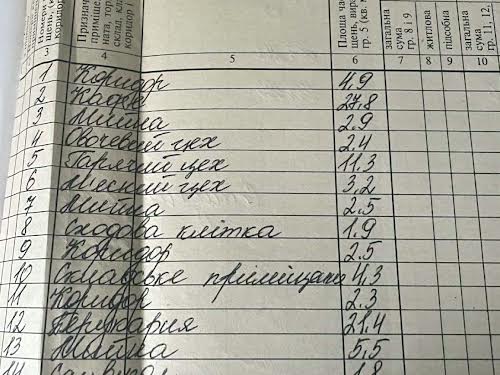 Номери
щень, (к
коридор
Признач
приміще
ната, тор
склад, кл
коридор і
Площа час
щень, вира
гр. 5 (кв. м
загальна
сума
гр. 8 і 9
житлова
підсобна
загальна
сума
гр. 11, 12,
3 4 5 6 7 8 9 10
1 Коридор 4.9
2 Кафе 27.8
3 Мийка 2.9
4 Овочевий цех 2.4
5 Гарячий цех 11.3
6 М'ясний цех 3,2
7 Мийка 2.5
8 Сходова клітка 1.9
9 Коридор 2.5
10 приміщення 4,3
11 Коридор 2.3
12 21.4
13 Мийка 5,5
14 1.8